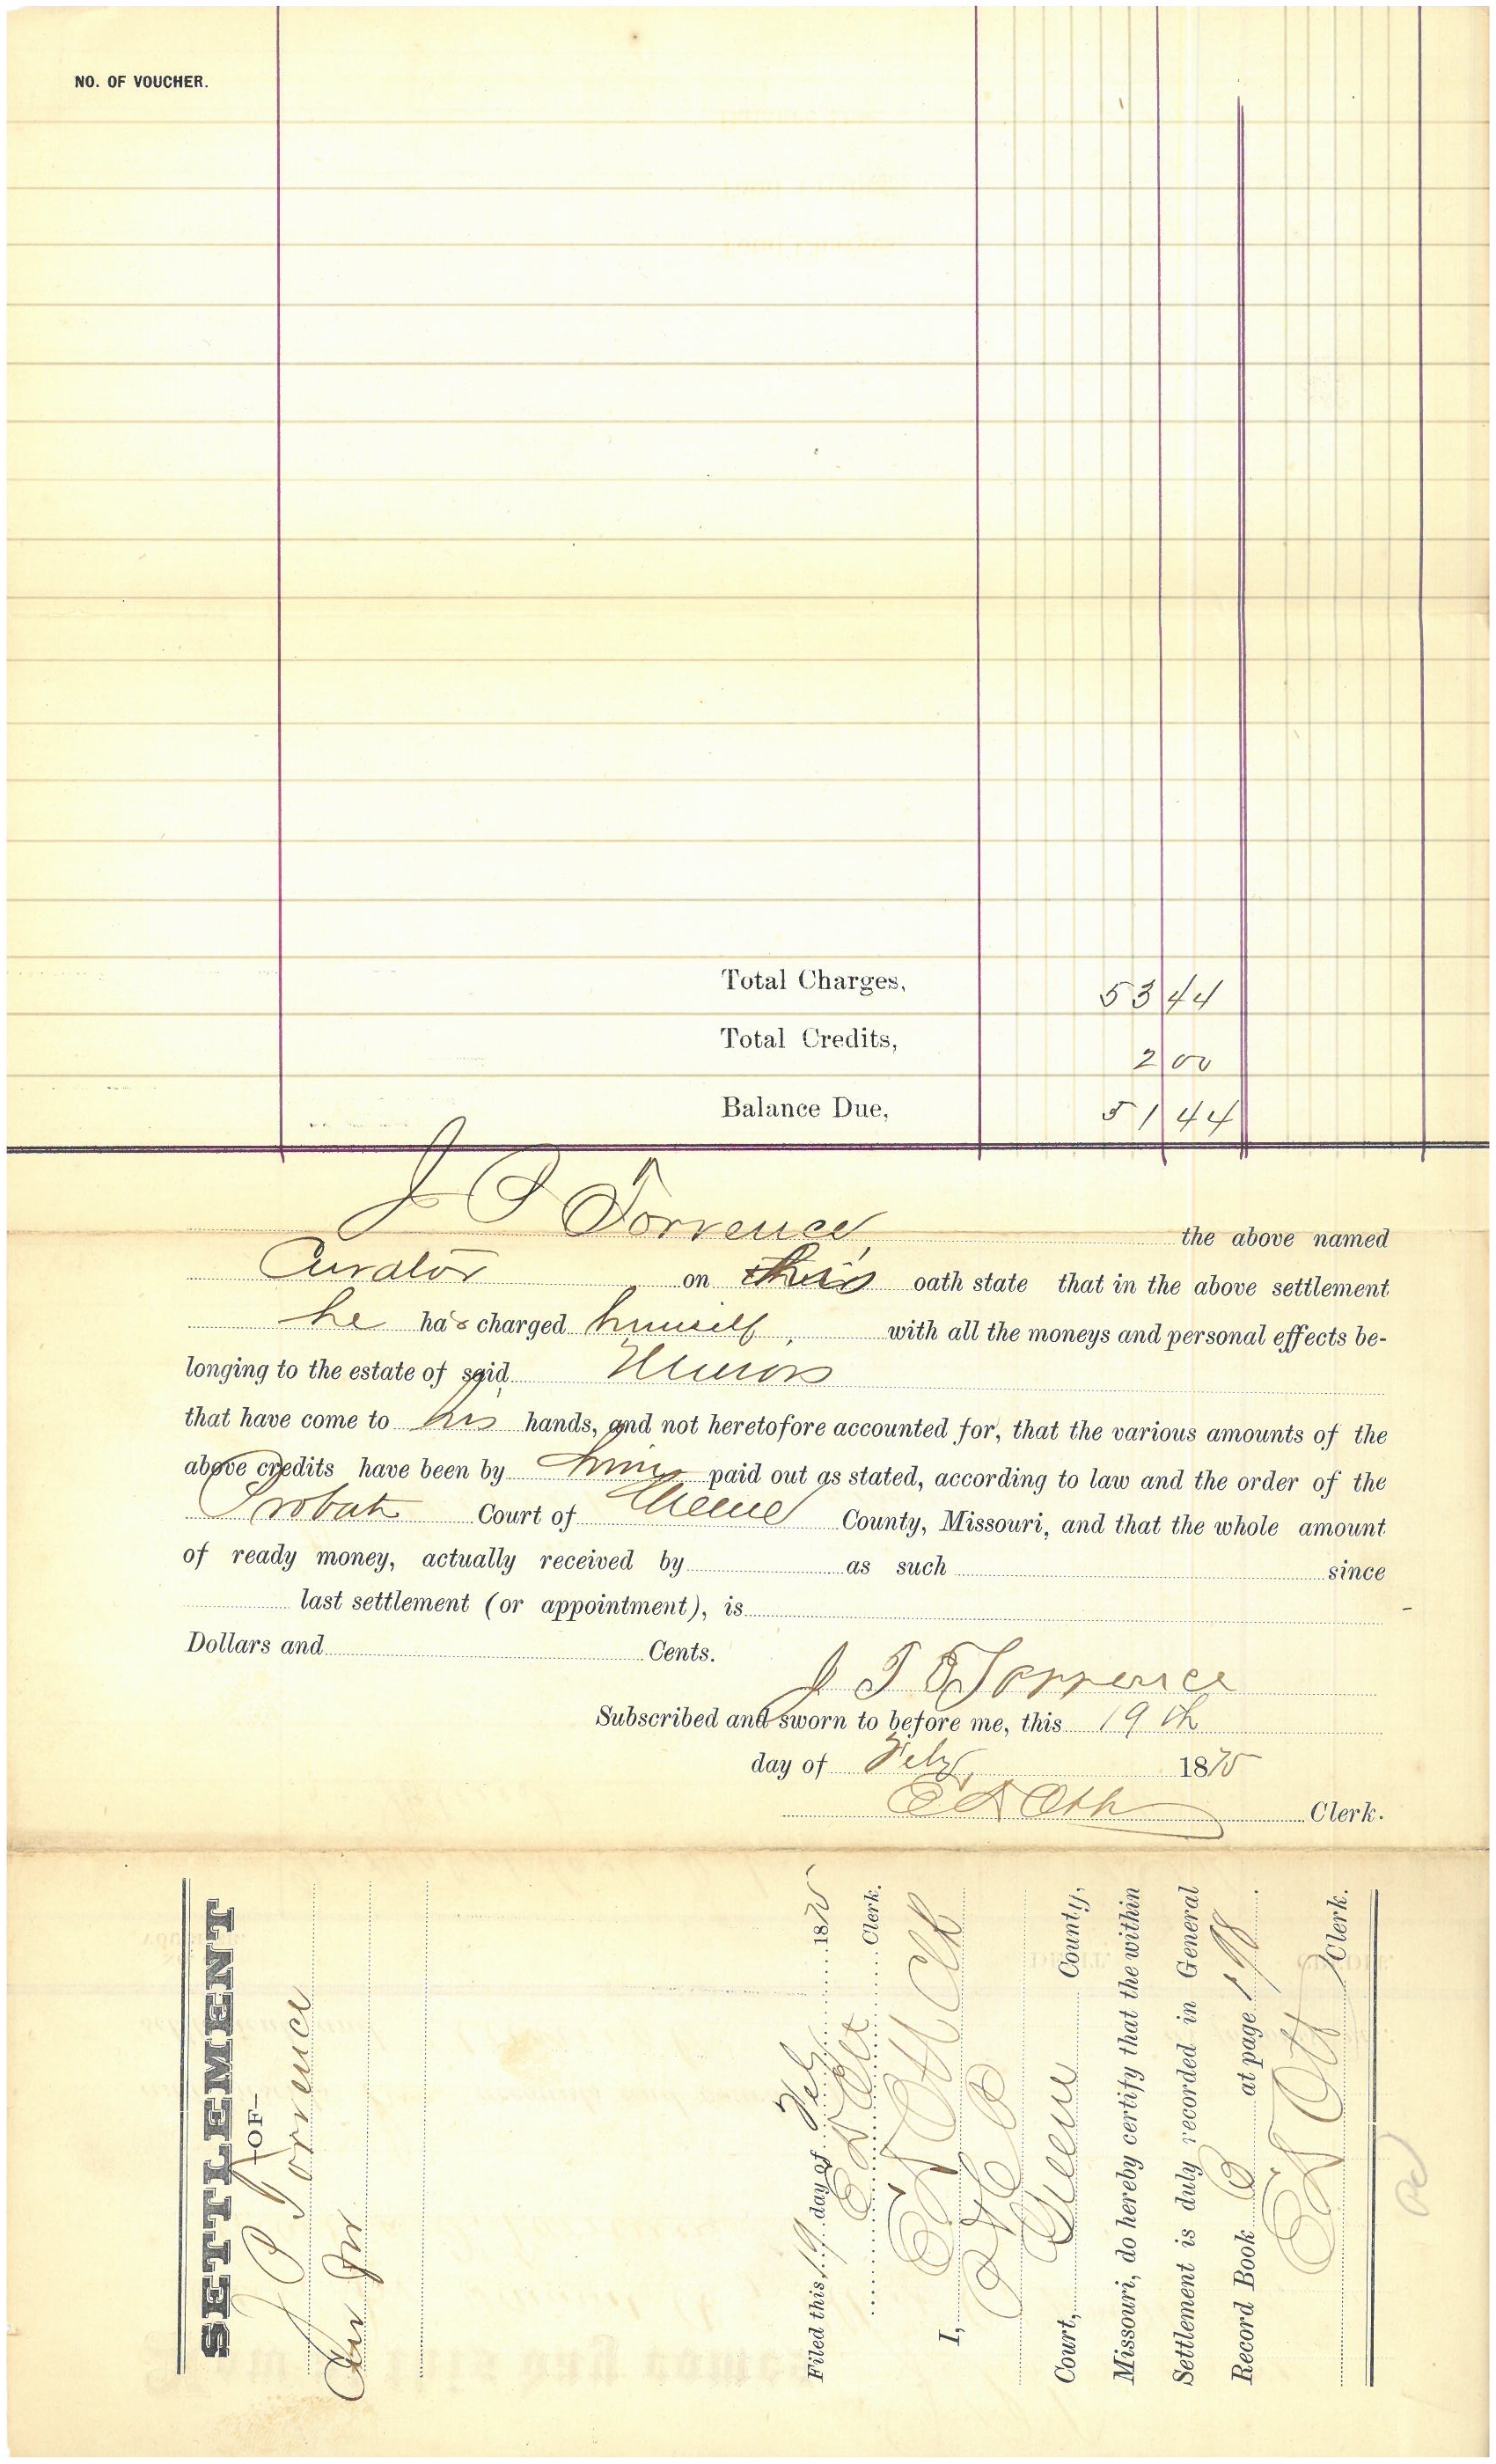 NO. OF VOUCHER.
Total Charges, 53 44
Total Credits, 2 00
Balance Due, 51 44
J P Torrence the above named
Curator on his oath state that in the above settlement
he has charged himself with all the moneys and personal effects be-
longing to the estate of said Minors
that have come to his hands, and not heretofore accounted for, that the various amounts of the
above credits have been by him paid out as stated, according to law and the order of the
Probate Court of Greene County, Missouri, and that the whole amount
of ready money, actually received by as such since
last settlement (or appointment), is
Dollars and Cents.
J P Torrence
Subscribed and sworn to before me, this 19th
day of Feby 1875
E D Ott Clerk.
SETTLEMENT
—OF—
J P Torrence
Filed this 19 day of Feby 1875
E D Ott Clerk.
I, E D Ott Clk
Court, Greene County,
Missouri, do hereby certify that the within
Settlement is duly recorded in General
Record Book at page
E D Ott Clerk.